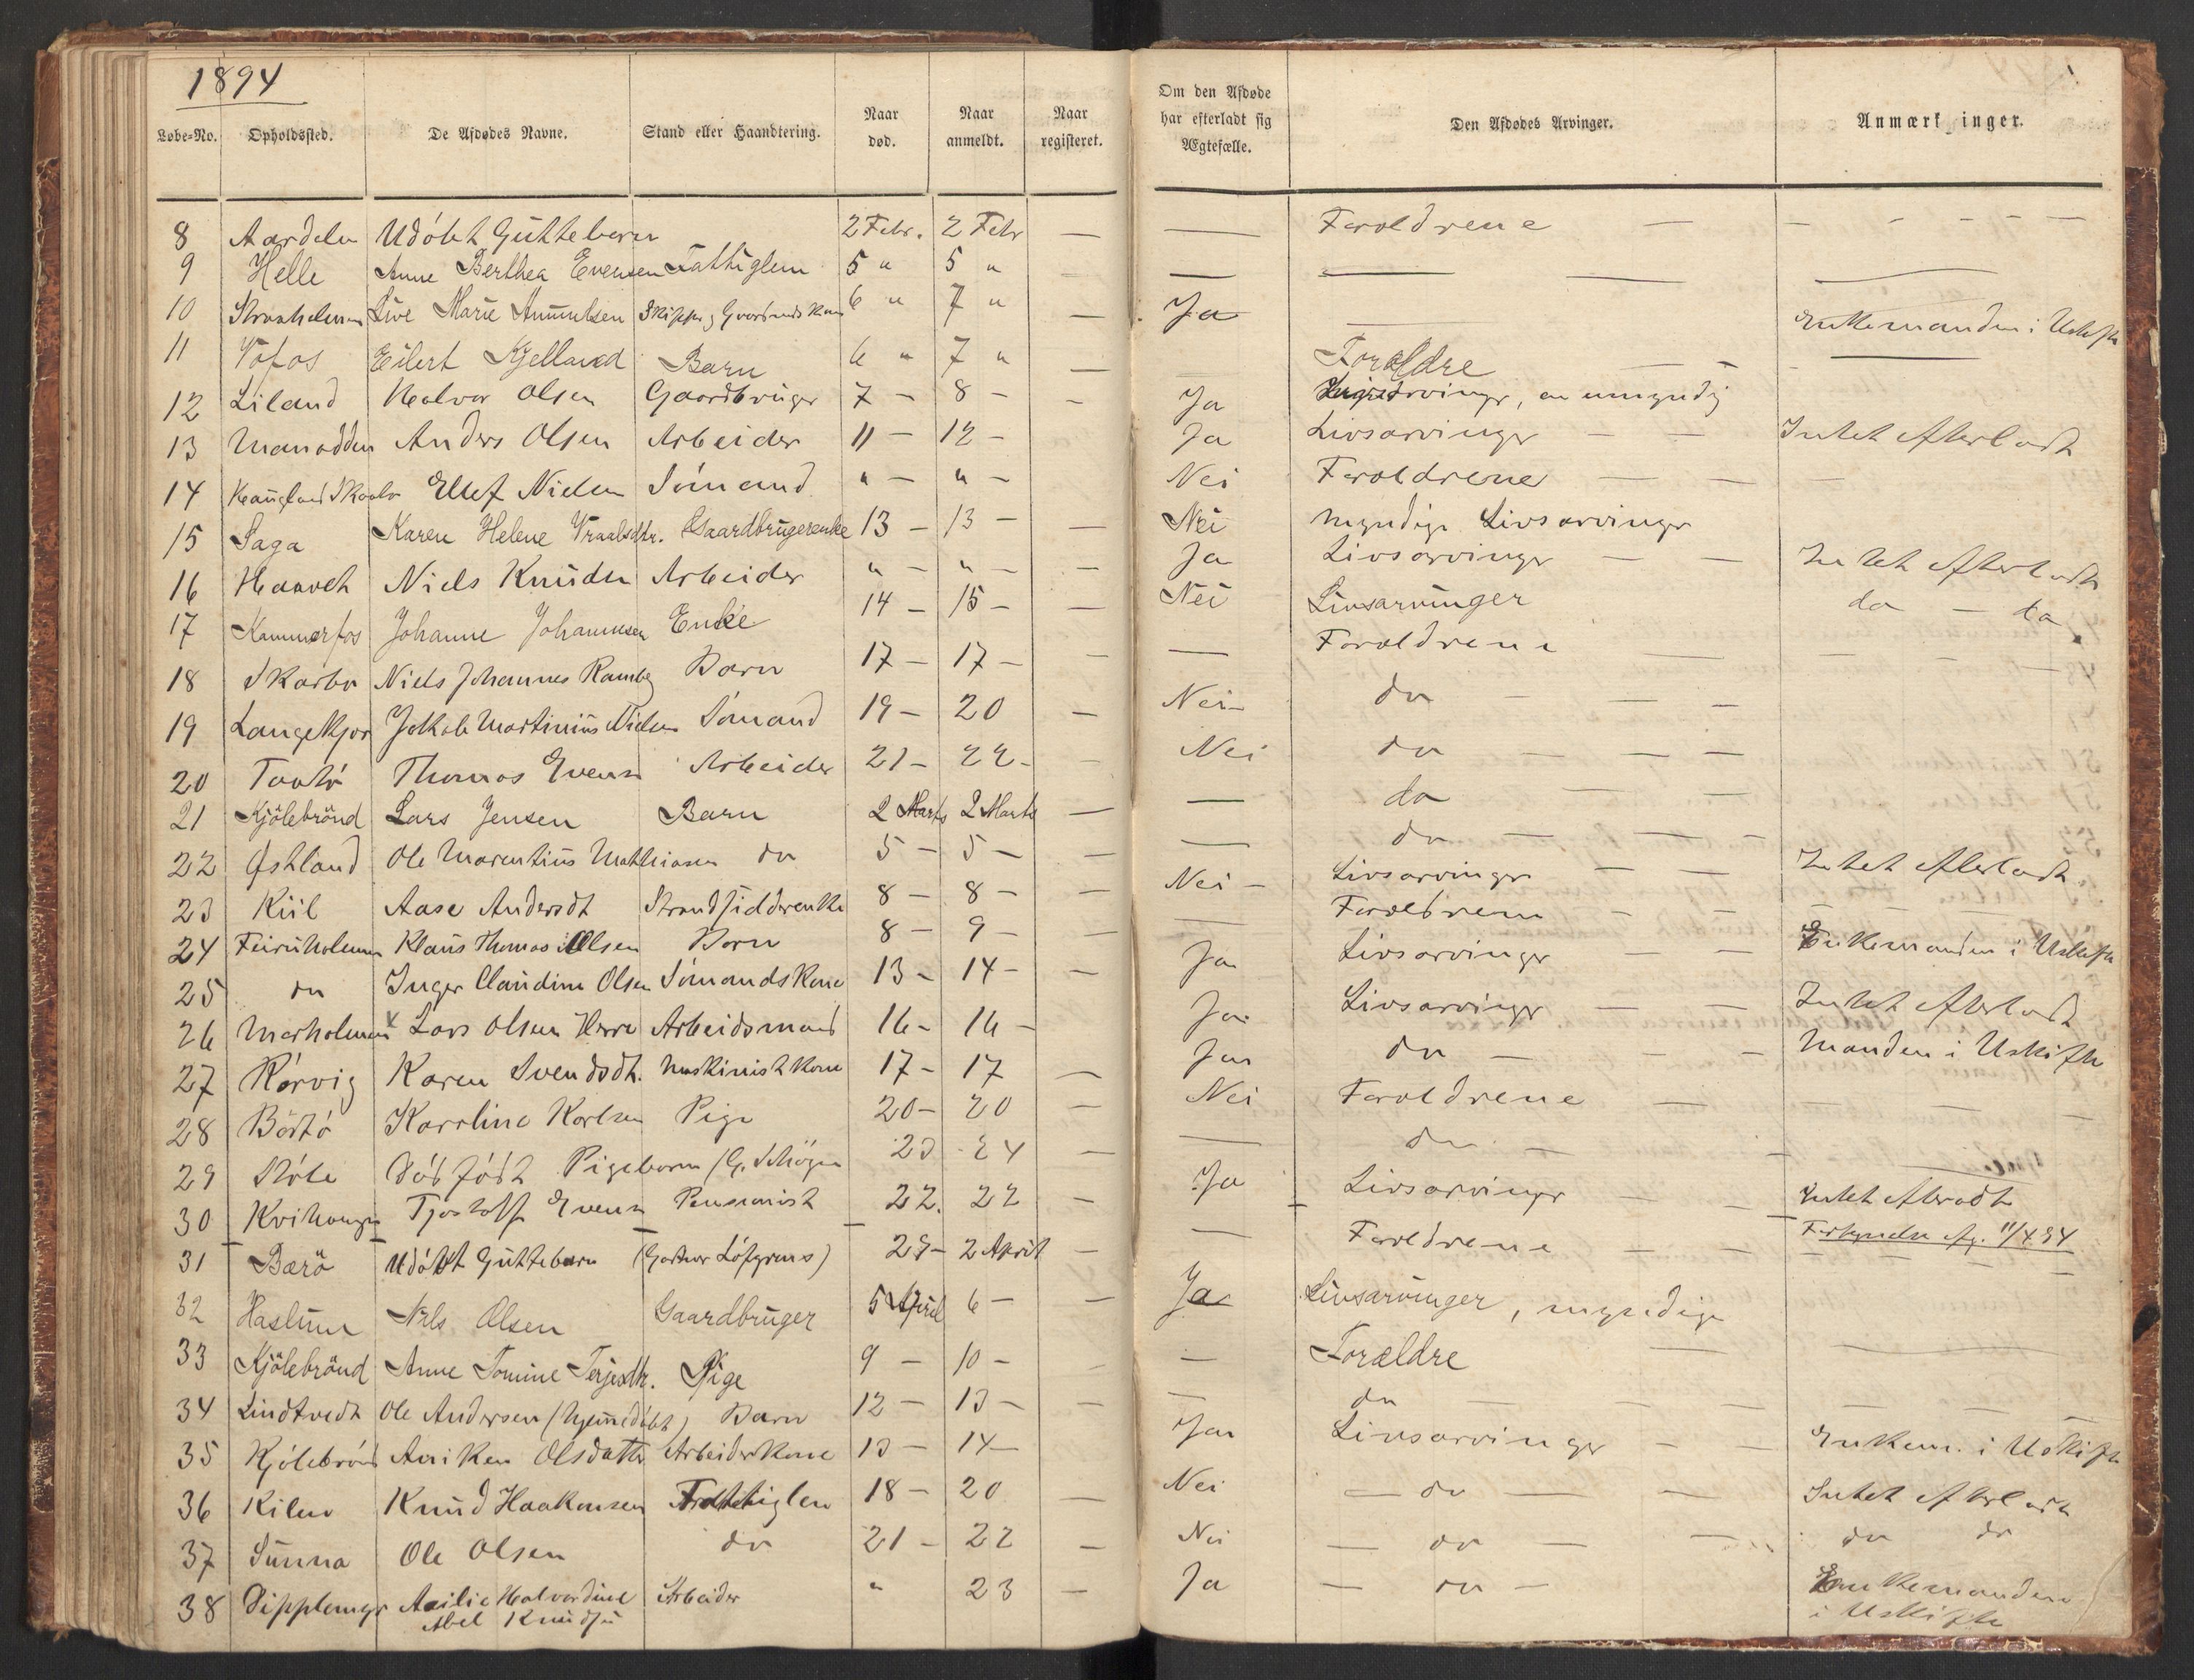 1894
Løbe-No. Opholdssted. De Afdødes Navne. Stand eller Haandtering. Naar død. Naar anmeldt. Naar registeret. Om den Afdøde har efterladt sig Ægtefælle. Den Afdødes Arvinger. Anmærkninger.
8 Aardalen Udöbt Guttebarn 2 Febr. 2 Febr — — Forældrene — — — — — —
9 Helle Anne Berthea Evensen Fattiglem 5 " 5 " — — — — —
10 Straaholmen Live Marie Amundsen Skipper og 6 " 7 " — Ja — Enkemanden i Uskifte
11 Vafos Eilert Kjelland Barn 6 " 7 " — Forældre — — —
12 Liland Halvor Olsen Gaardbruger 7 — 8 — — Ja Livsarvinger, en umyndig
13 Manodden Anders Olsen Arbeider 11 — 12 — Ja Livsarvinger — — Intet efterladt
14 Haugland Skaatø Ellef Nielsen Sömand " — " — Nei Forældrene — — —
15 Saga Karen Helene Vraalsdtr. Gaardbrugerenke 13 — 13 — — Nei myndige Livsarvinger
16 Haavet Niels Knudsen Arbeider " — " — — Ja Livsarvinger — — Intet efterladt
17 Kammerfos Johanne Johannesen Enke 14 — 15 — — Nei Livsarvinger do — do
18 Skarbo Niels Johannes Ramberg Barn 17 — 17 — — — Forældrene — — — — —
19 Langekjær Jakob Martinius Nielsen Sömand 19 — 20 — Nei — do — — —
20 Taatö Thomas Evensen Arbeider 21 — 22 — — Nei do — — —
21 Kjölebrönd Lars Jensen Barn 2 Marts 2 Marts — — do — —
22 Østland Ole Marentius Mathiasen do 5 — 5 — — — do — — —
23 Kiil Aase Andersdt Strandsidderenke 8 — 8 — — Nei — Livsarvinger — — Intet efterladt
24 Furuholmen Klaus Thomas Olsen Barn 8 — 9 — — — Forældrene — — — — —
25 do Inger Claudine Olsen Sömandskone 13 — 14 — — Ja Livsarvinger — — Enkemanden i Uskifte
26 Marholmen Lars Olsen Herre Arbeidsmand 16 — 16 — Ja Livsarvinger — — Intet efterladt
27 Rörvig Karen Svendsdt. Maskinist kone 17 — 17 — Ja do — — — Manden i Uskifte
28 Bärtö Karoline Karlsen Pige 20 — 20 — Nei Forældrene — — — —
29 Stöle Dödfödt Pigebarn 23 24 — — do — —
30 Tjostolf Evensen Pensionist 22. 22 — Ja Livsarvinger — — Intet efterladt
31 Bærö Udöbt Guttebarn (Gartner Löfgrens) 29 — 2 April — — Forældrene — — 11/4 94
32 Haslum Nils Olsen Gaardbruger 5 April 6 — — Ja Livsarvinger, myndige
33 Kjölebrönd Anne Tomine Terjesdtr. Pige 9 — 10 — — — Forældre — —
34 Lindtvedt Ole Andersen (hjemmedöbt) Barn 12 — 13 — — do — — — — —
35 Kjölebrönd Aniken Olsdatter Arbeiderkone 13 — 14 — Ja Livsarvinger — — Enkem. i Uskifte
36 Kilen Knud Haakonsen Fattiglem 18 — 20 — Nei — do — — Intet efterladt
37 Sunna Ole Olsen do 21 — 22 — Nei — do — — do do
38 Halvordine Arbeider " 23 — Ja — do — Enkemanden
Abel Knudsen i Uskifte